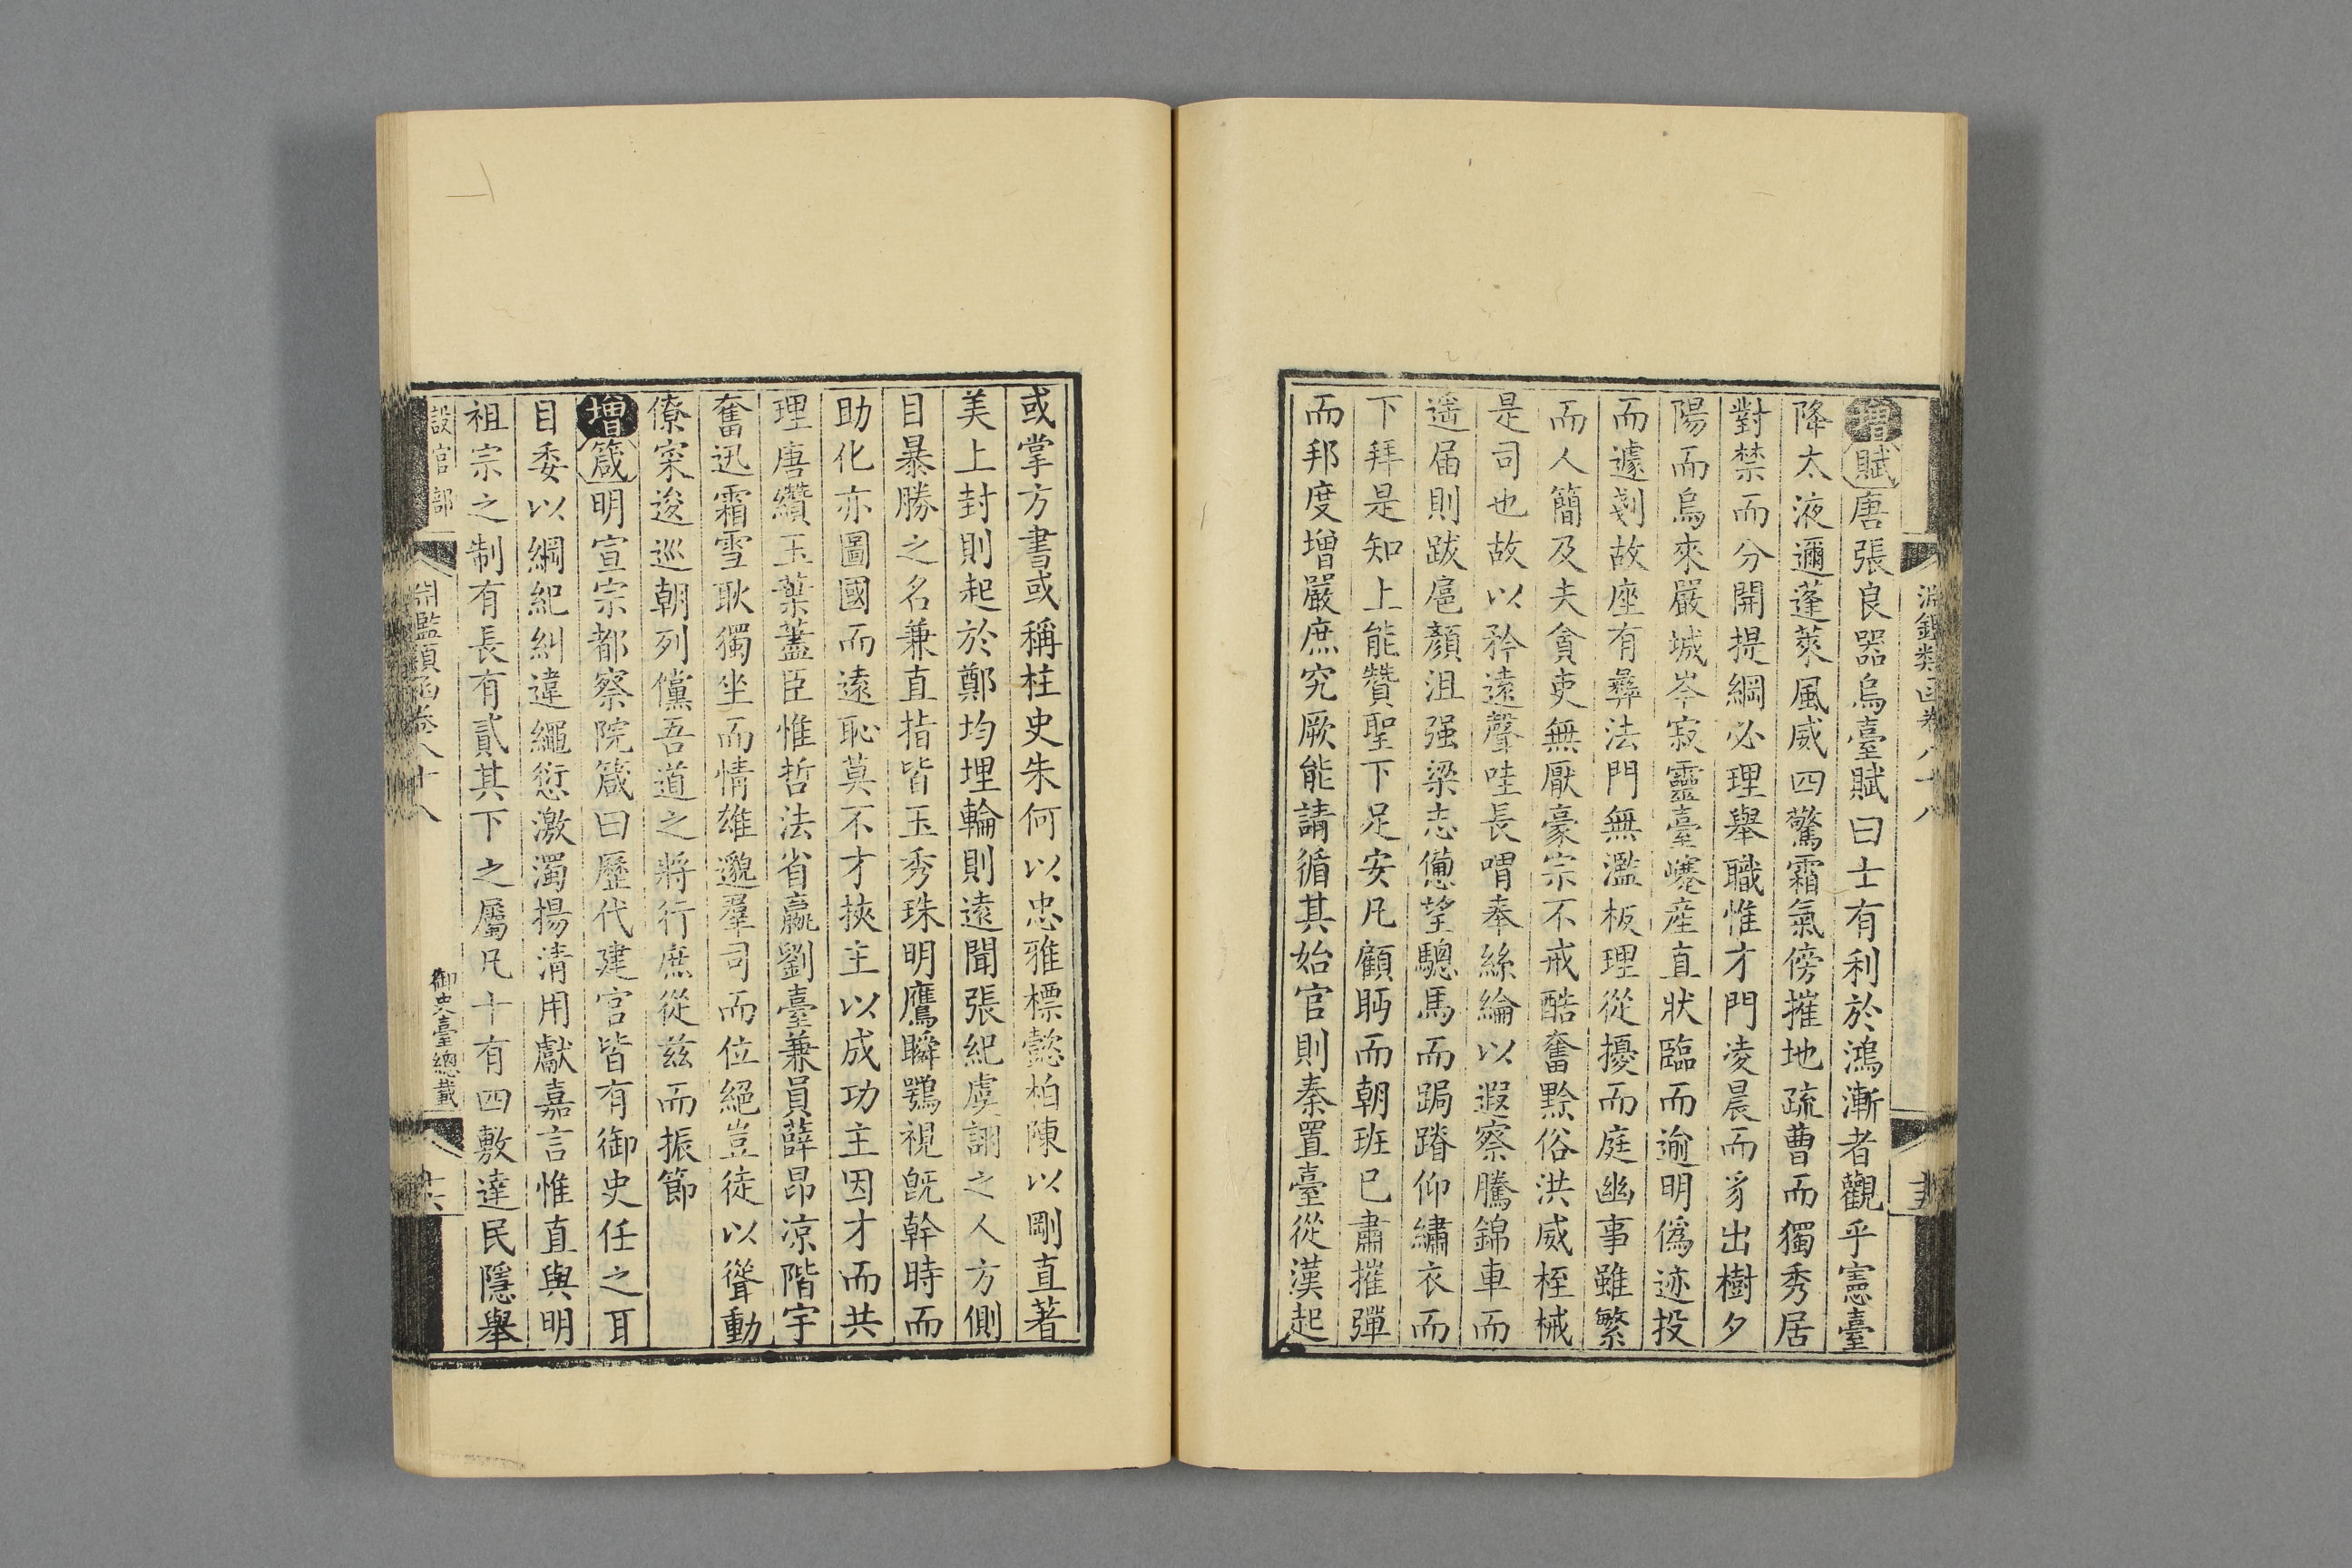 增賦唐張良器烏臺賦曰士有利於鴻漸者觀乎憲臺
降太液邇蓬萊風威四驚霜氣傍摧地疏曹而獨秀居
對禁而分開提綱必理舉職惟才門凌晨而豸出樹夕
陽而烏來嚴城岑寂靈臺㠍產直狀臨而逾明僞迹投
而遽剗故座有彝法門無濫板理從擾而庭幽事雖繁
而人簡及夫貪吏無厭豪宗不戒酷奮黥俗洪威桎械
是司也故以矜遠聲哇長喟奉絲綸以遐察騰錦車而
遥届則跋扈顏沮强梁志憊望驄馬而跼蹐仰繡衣而
下拜是知上能贊聖下足安凡顧眄而朝班已肅摧彈
而邦度增嚴庶究厥能請循其始官則秦置臺從漢起
或掌方書或稱柱史朱何以忠雅標懿柏陳以剛直著
美上封則起於鄭均埋輪則遠聞張紀虞詡之人方側
目暴勝之名兼直指皆玉秀珠明鷹瞬鶚視旣幹時而
助化亦圖國而遠恥莫不才挾主以成功主因才而共
理唐纘玉葉藎臣惟哲法省羸劉臺兼員薛昂凉階宇
奮迅霜雪耿獨坐而情雄邈羣司而位絕豈徒以聳動
僚寀逡巡朝列儻吾道之將行庶從兹而振節
增箴明宣宗都察院箴曰歷代建官皆有御史任之耳
目委以綱紀糾違繩愆激濁揚清用獻嘉言惟直與明
祖宗之制有長有貳其下之屬凡十有四敷達民隱舉
設官部
淵鑑類函卷八十八
御史臺總載